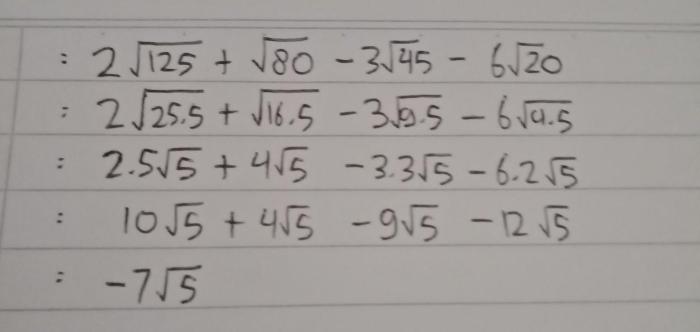 : 2√125 + √80 - 3√45 - 6√20
: 2√25.5 + √16.5 - 3√9.5 - 6√4.5
: 2.5√5 + 4√5 - 3.3√5 - 6.2√5
: 10√5 + 4√5 - 9√5 - 12√5
: -7√5